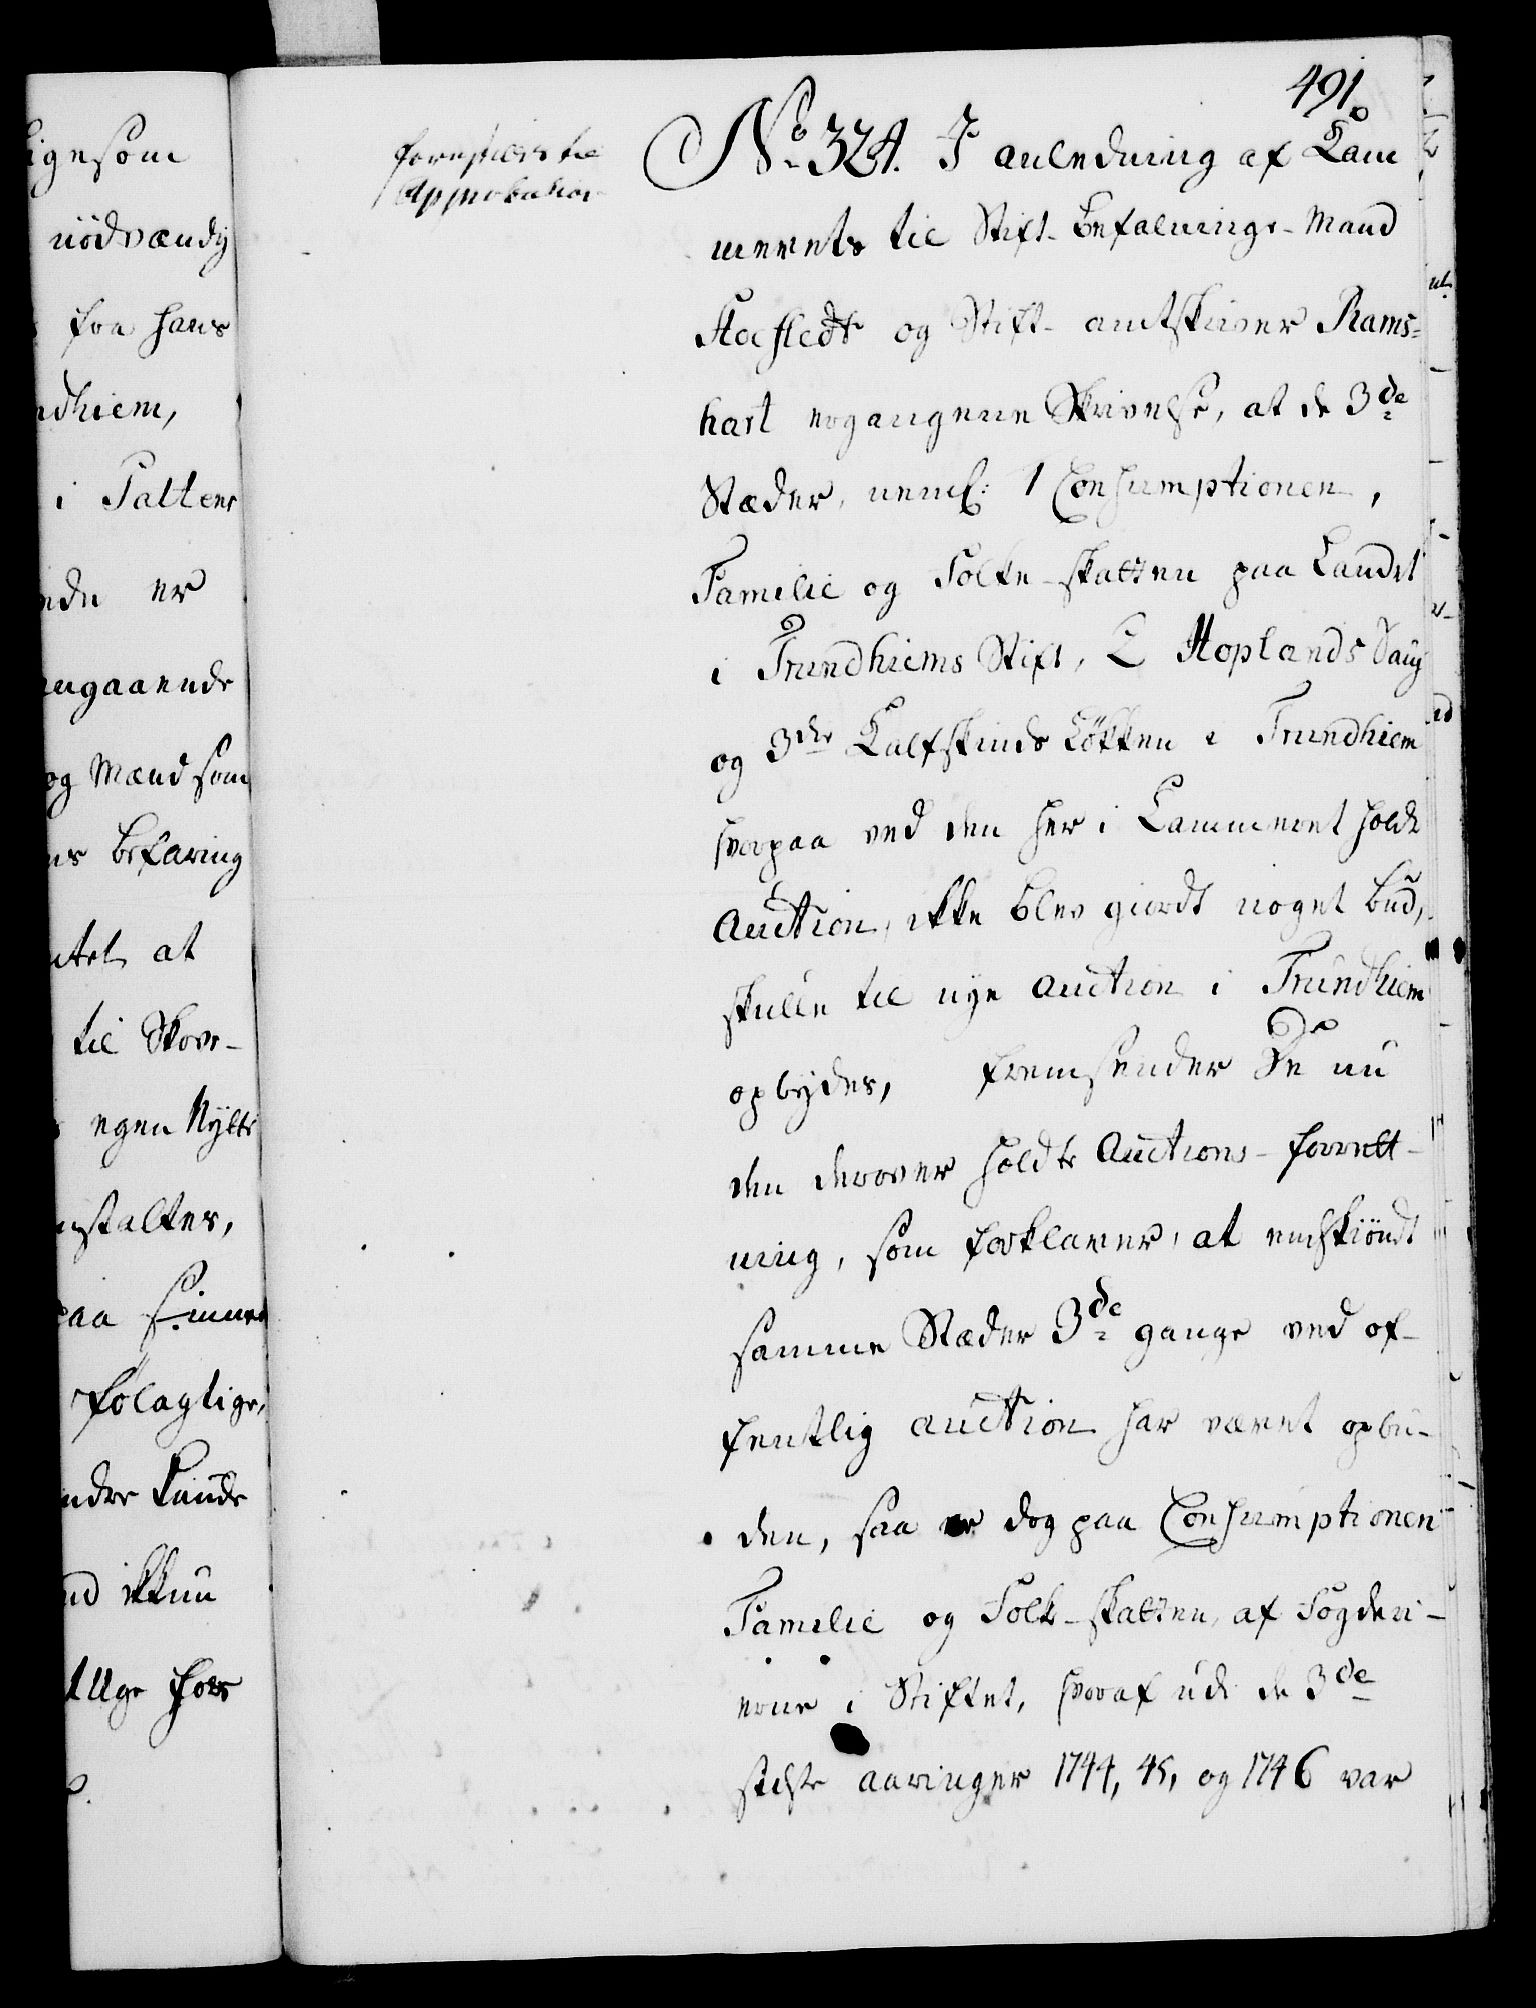 491.
forestilles til
Approbation
No. 324. I anledning af Cam
merets til Stift-befalnings-Mand
Hoefledt og Stift-amtskriver Rams-
hart ergangene Skrivelse, at de 3de
Stæder, neml: 1 Consumptionen,
Familie og Folke-skatten paa Landet
i Trundhiems Stift, 2 Hoplands Saug
og 3die Kalfskinds Løkken i Trundhiem
hvorpaa ved den her i Cammeret holdte
Auction, ikke blev giordt noget bud,
skulle til nye auction i Trundhiem
opbydes, fremsender De nu
den derover holdte Auctions-forrett-
ning, som forklarer, at endskiöndt
samme Stæder 3de gange ved of-
fentlig auction har været opbu-
den, saa er dog paa Consumptionen
Familie og Folk-skatten, af Fogderi-
erne i Stiftet, hvoraf udi de 3de
sidste aaringer 1744, 45, og 1746 var
igesom
nödvændig
fra hans
dhiem,
i Tallens
er
angaaende
og Mænd som
befaring
at
til Skov-
egen Nytte
nstaltes,
paa
folagtige,
ikkun